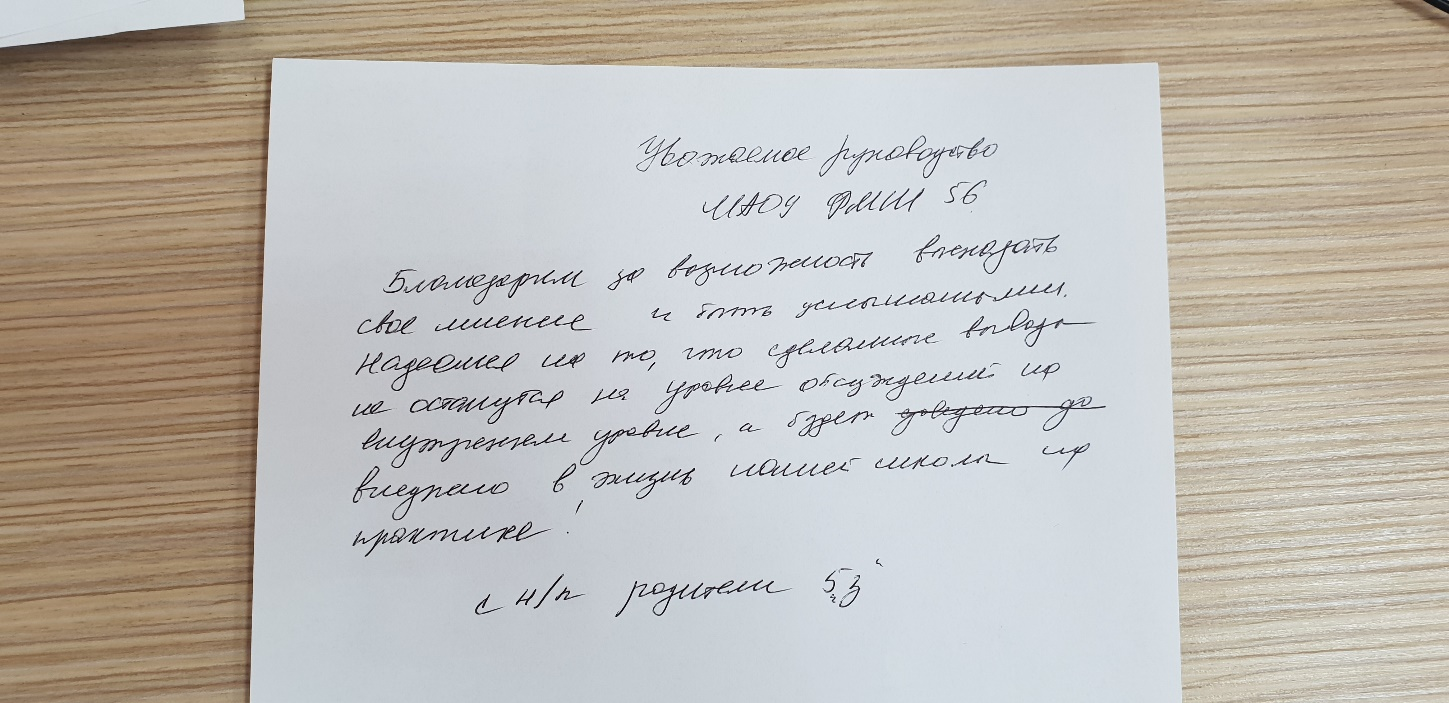 Уважаемое руководство
МАОУ ФМШ 56
Благодарим за возможность высказать
свое мнение и быть услышанными.
Надеемся на то, что сделанные выводы
не останутся на уровне обсуждений на
внутреннем уровне, а будет доведено до
внедрено в жизнь нашей школы на
практике!
с н/п родители 5„З“